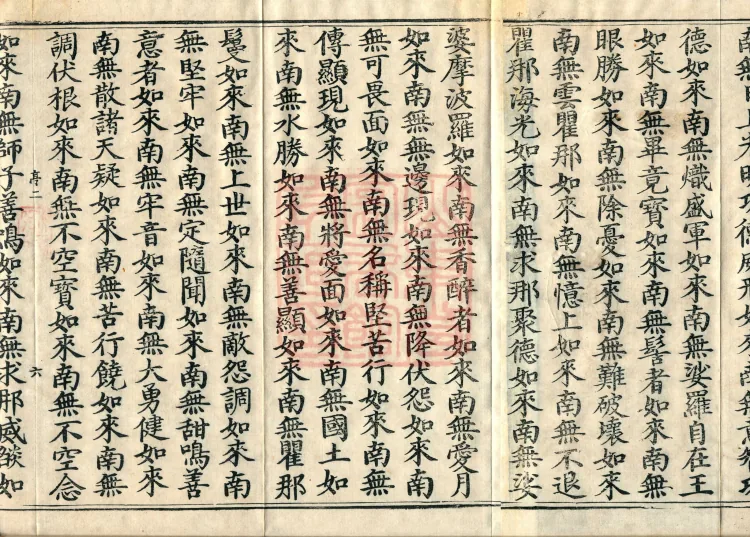 德如來南無熾盛軍如來南無娑羅自在王
如來南無畢竟寶如來南無髻者如來南無
眼勝如來南無除憂如來南無難破壞如來
南無雲瞿那如來南無憶上如來南無不退
瞿那海光如來南無求那聚德如來南無娑
婆摩波羅如來南無香醉者如來南無愛月
如來南無無邊現如來南無降伏怨如來南
無可畏面如來南無名稱堅苦行如來南無
傳顯現如來南無將愛面如來南無國土如
來南無水勝如來南無善顯如來南無瞿那
鬘如來南無上世如來南無敵怨調如來南
無堅牢如來南無定隨聞如來南無甜鳴善
意者如來南無牢音如來南無大勇健如來
南無散諸天疑如來南無苦行饒如來南無
調伏根如來南無不空寶如來南無不空念
亭二 六
如來南無師子善鳴如來南無求那威燄如